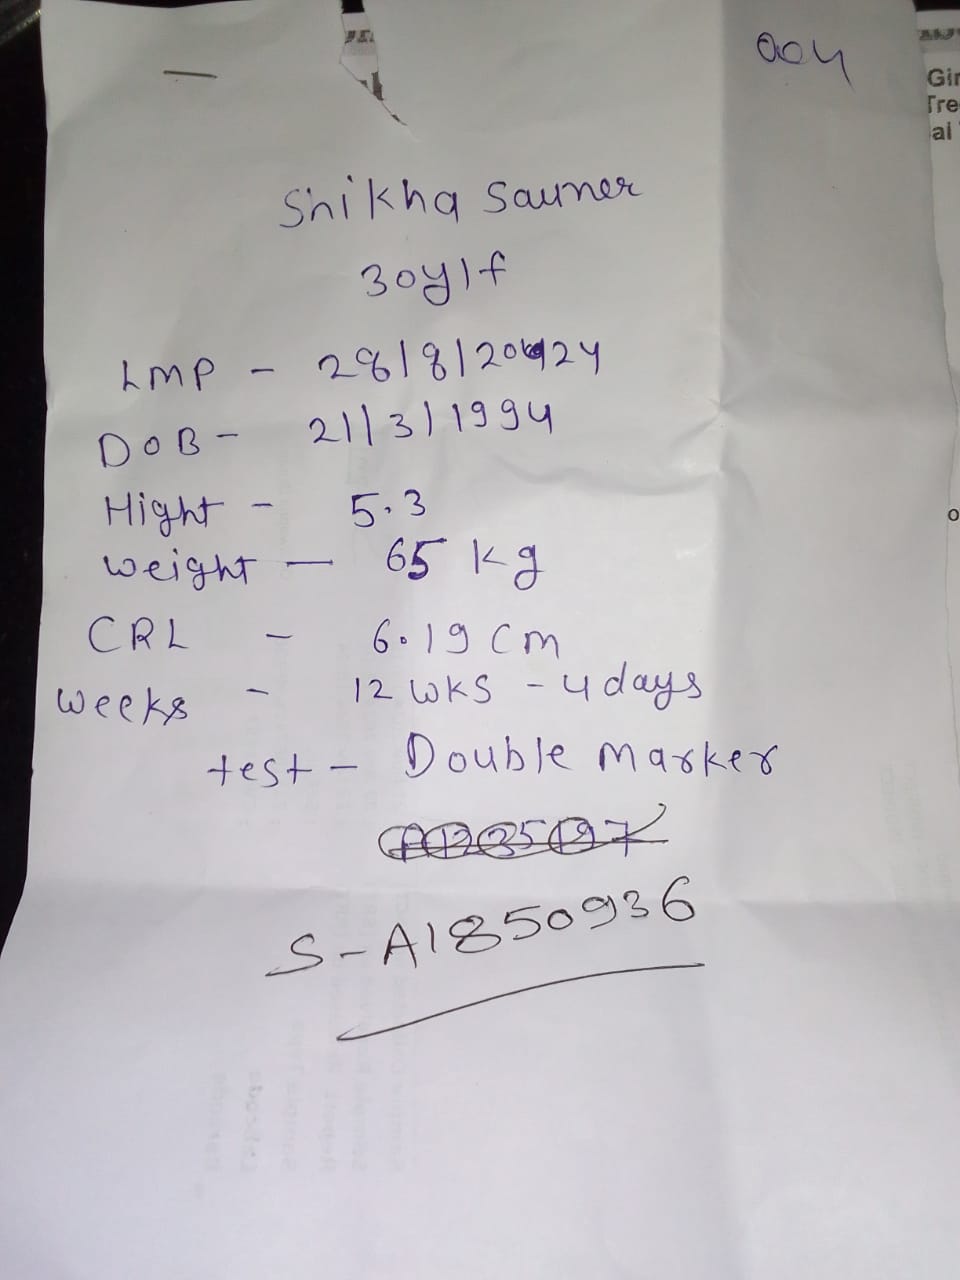 004
Gir
Tre
al
Shikha Sauner
30y/f
LMP - 28/8/2024
DOB - 21/3/1994
Hight - 5.3
weight - 65 kg
CRL - 6.19 cm
weeks - 12 wks - 4 days
test - Double marker
S-A1850936